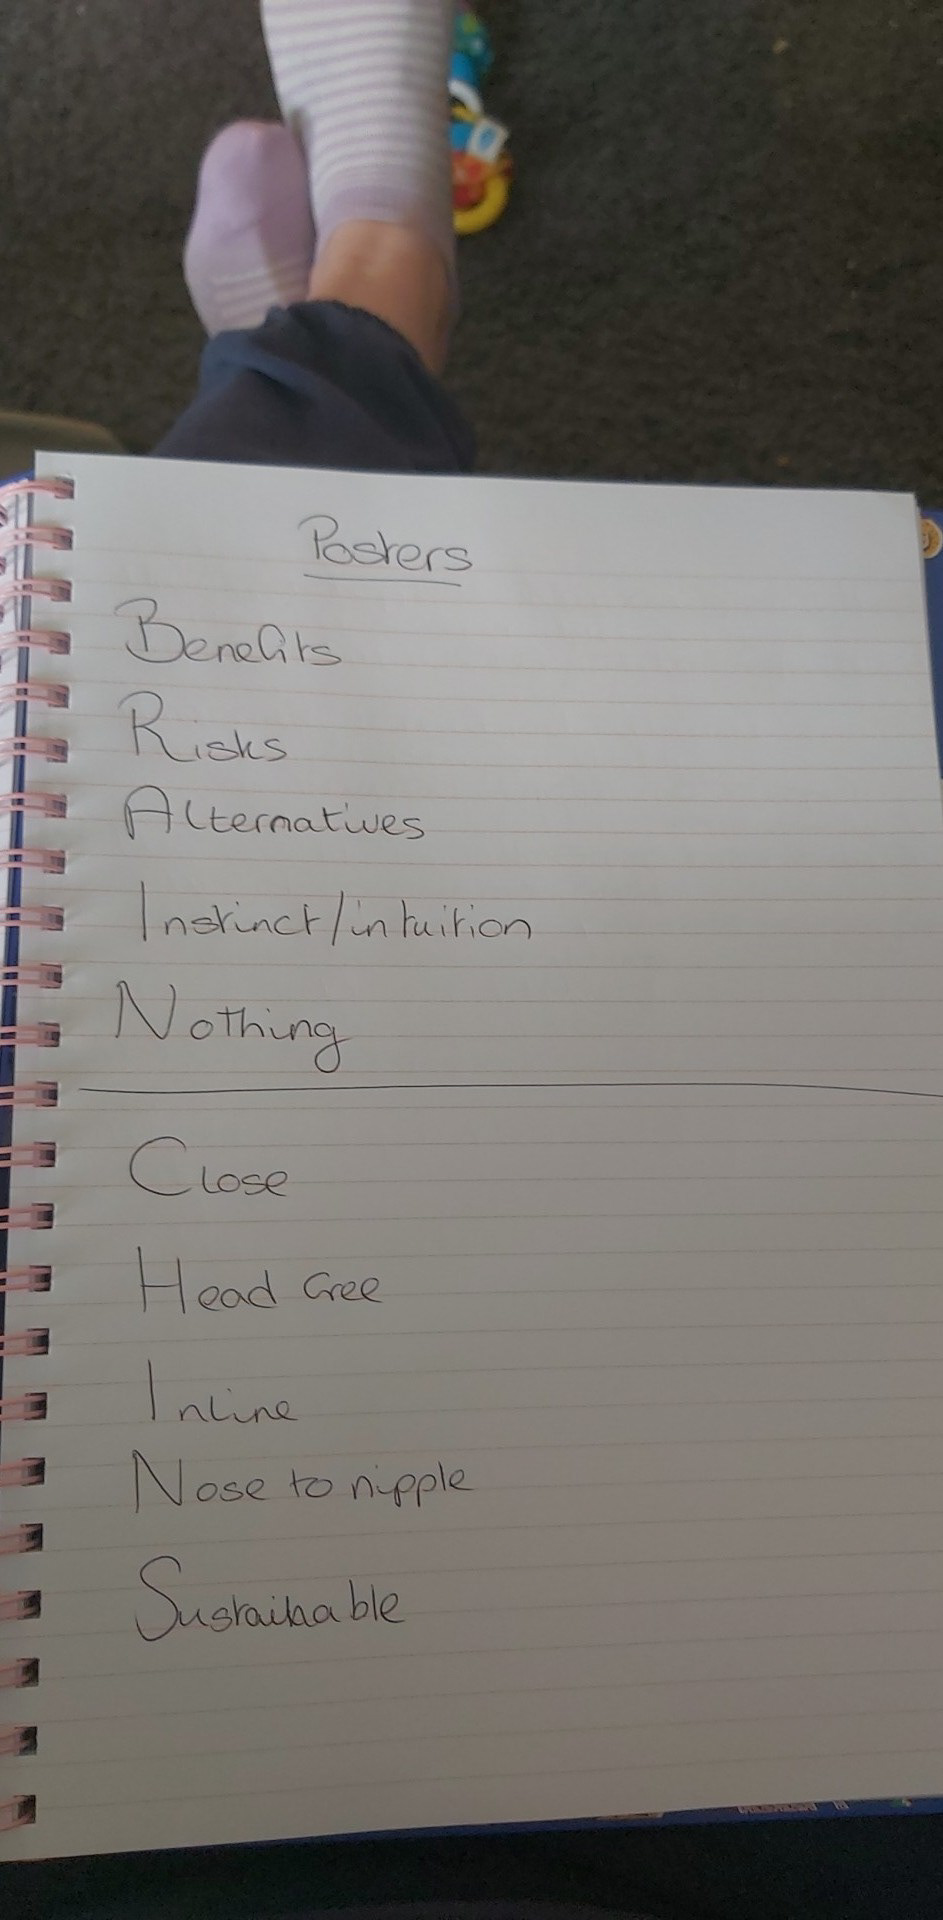 Posters
Benefits
Risks
Alternatives
Instinct/intuition
Nothing
Close
Head free
Inline
Nose to nipple
Sustainable